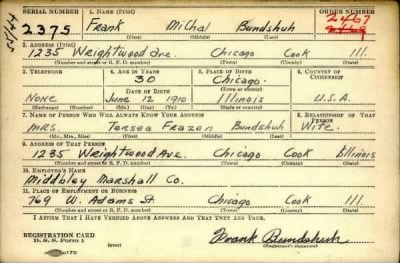 SERIAL NUMBER 1. NAME (Print) ORDER NUMBER
2375 Frank Michal Bundshuh 2467
(First) (Middle) (Last)
2. ADDRESS (Print)
1235 Wrightwood Ave. Chicago Cook Ill.
(Number and street or R. F. D. number) (Town) (County) (State)
3. TELEPHONE 4. AGE IN YEARS 5. PLACE OF BIRTH 6. COUNTRY OF CITIZENSHIP
30 Chicago
DATE OF BIRTH (Town or county)
None June 12 1910 Illinois U.S.A.
(Exchange) (Number) (Mo.) (Day) (Yr.) (State or country)
7. NAME OF PERSON WHO WILL ALWAYS KNOW YOUR ADDRESS 8. RELATIONSHIP OF THAT PERSON
Mrs Taresa Frazen Bundshuh Wife.
(Mr., Mrs., Miss) (First) (Middle) (Last)
9. ADDRESS OF THAT PERSON
1235 Wrightwood Ave. Chicago Cook Illinois
(Number and street or R. F. D. number) (Town) (County) (State)
10. EMPLOYER'S NAME
Middbley Marshall Co.
11. PLACE OF EMPLOYMENT OR BUSINESS
769 W. Adams St. Chicago Cook Ill.
(Number and street or R. F. D. number) (Town) (County) (State)
I AFFIRM THAT I HAVE VERIFIED ABOVE ANSWERS AND THAT THEY ARE TRUE.
REGISTRATION CARD
D. S. S. Form 1 Frank Bundshuh
(Registrant's signature)